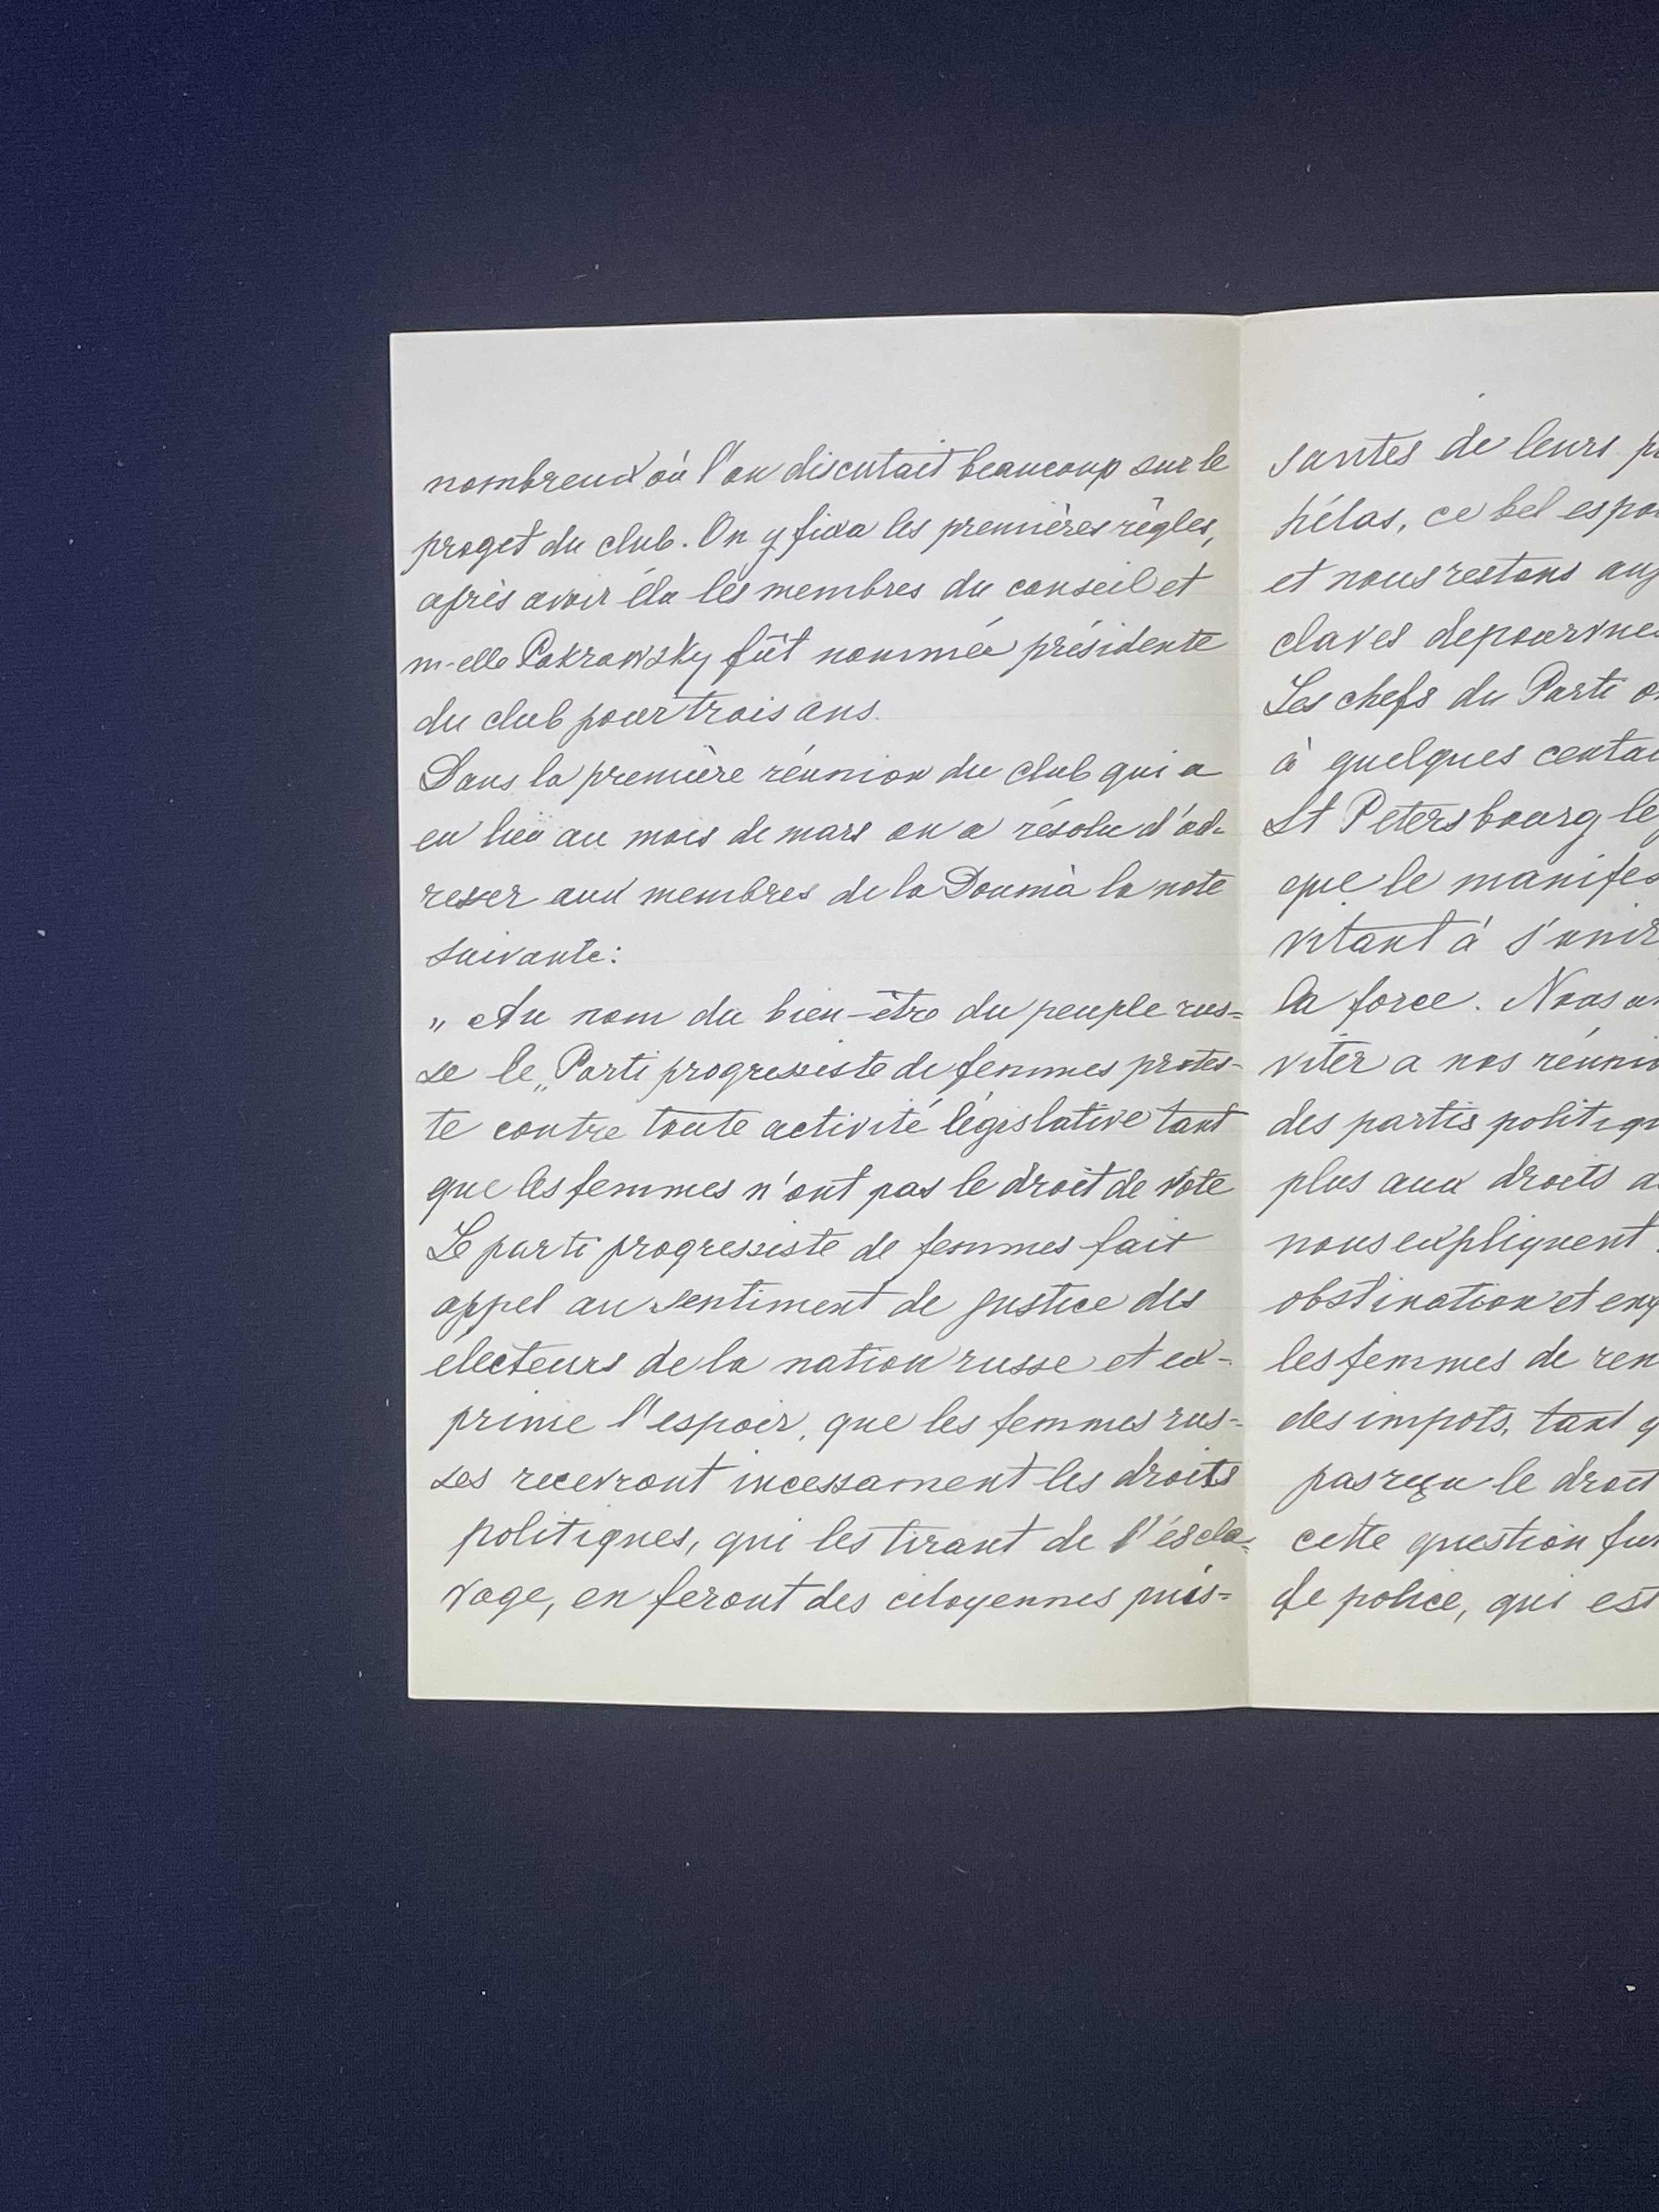 nombreux où l'on discutait beaucoup sur le
proget du club. On y fixa les premières règles,
après avoir élu les membres du conseil et
m-elle Pokrowsky fût nommée présidente
du club pour trois ans.
Dans la première réunion du club qui a
eu lieu au mois de mars on a résolu d'ad-
resser aux membres de la Douma la note
suivante:
„ Au nom du bien-être du peuple rus=
se le „Parti progressiste de femmes protes-
te contre toute activité législative tant
que les femmes n'ont pas le droit de vote
Le parti progressiste de femmes fait
appel au sentiment de justice des
électeurs de la nation russe et ex-
prime l'espoir, que les femmes rus-
ses recevront incessament les droits
politiques, qui les tirant de l'éscla=
vage, en feront des citoyennes puis=
santes de leurs p
hélas, ce bel espo
et nous restons auj
claves depourvue
Les chefs du Parti o
à quelques centai
St Petersbourg le
que le manifes
vitant à s'unir
la force. Nous a
viter a nos réunio
des partis politiqu
plus aux droits d
nous expliquent
obstination et eng
les femmes de ren
des impots, tant q
pas reçu le droit
cette question fu
de police, qui est